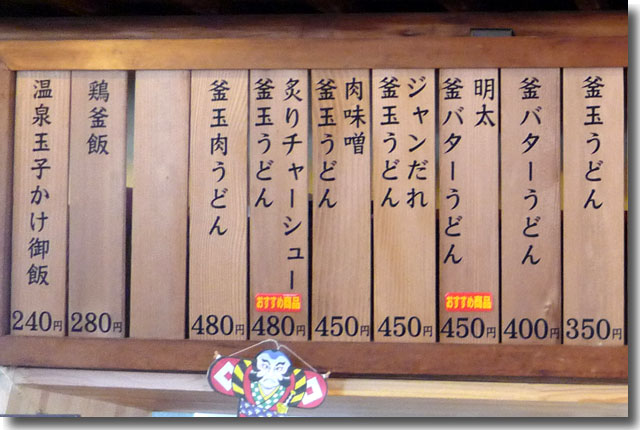 釜玉うどん
350円
釜バターうどん
400円
明太
釜バターうどん
おすすめ商品
450円
ジャンだれ
釜玉うどん
450円
肉味噌
釜玉うどん
450円
炙りチャーシュー
釜玉うどん
おすすめ商品
480円
釜玉肉うどん
480円
鶏釜飯
280円
温泉玉子かけ御飯
240円